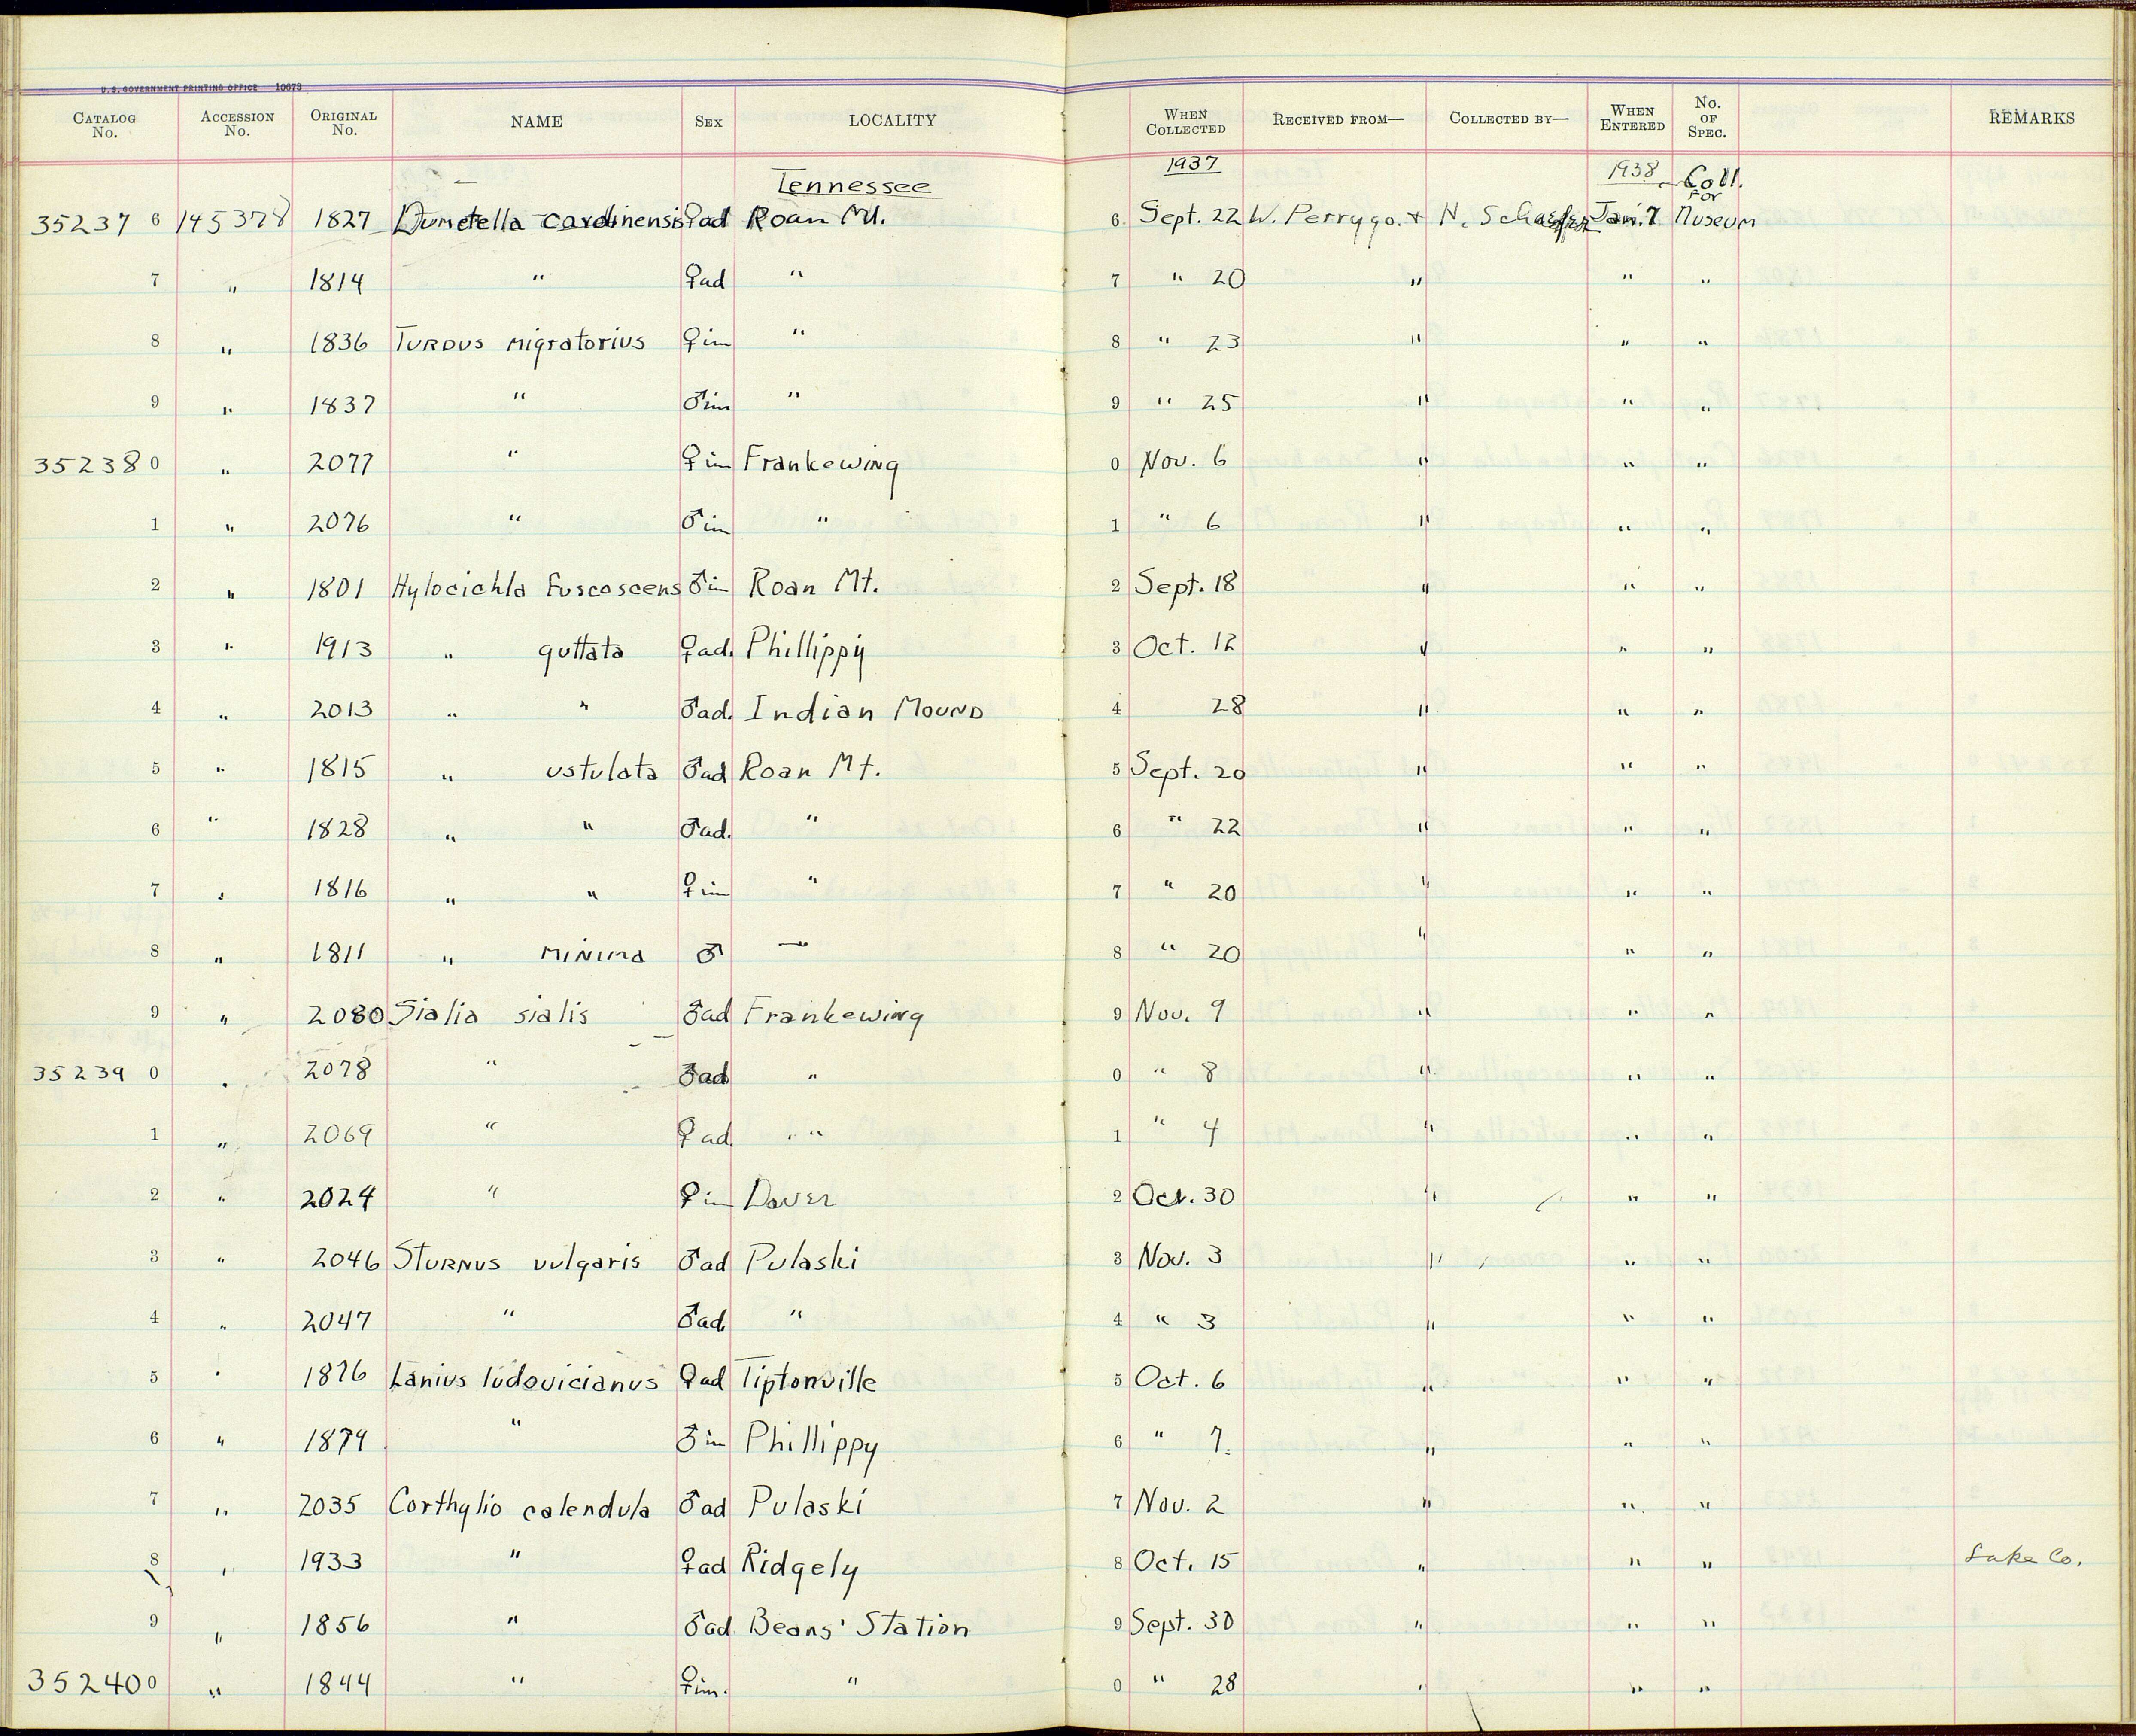 U.S. GOVERNMENT PRINTING OFFICE 10673
CATALOG No. ACCESSION No. ORIGINAL No. NAME SEX LOCALITY WHEN COLLECTED RECEIVED FROM— COLLECTED BY— WHEN ENTERED No. OF SPEC. REMARKS
Tennessee 1937 1938 Coll. For
35237 6 145378 1827 Dumetella carolinensis ♀ad Roan Mt. 6 Sept. 22 W. Perrygo. + H. Schaefer Jan. 7 Museum
7 " 1814 " ♀ad " 7 " 20 " " "
8 " 1836 Turdus migratorius ♀im " 8 " 23 " " "
9 " 1837 " ♂im " 9 " 25 " " "
35238 0 " 2077 " ♀im Frankewing 0 Nov. 6 " " "
1 " 2076 " ♂im " 1 " 6 " " "
2 " 1801 Hylocichla fuscoscens ♂im Roan Mt. 2 Sept. 18 " " "
3 " 1913 " guttata ♀ad. Phillippy 3 Oct. 12 " " "
4 " 2013 " " ♂ad. Indian Mound 4 28 " " "
5 " 1815 " ustulata ♂ad Roan Mt. 5 Sept. 20 " " "
6 " 1828 " " ♂ad. " 6 " 22 " " "
7 " 1816 " " ♀im " 7 " 20 " " "
8 " 1811 " minima ♂ " 8 " 20 " " "
9 " 2080 Sialia sialis ♂ad Frankewing 9 Nov. 9 " " "
35239 0 " 2078 " ♂ad " 0 " 8 " " "
1 " 2069 " ♀ad " 1 " 4 " " "
2 " 2024 " ♀im Dover 2 Oct. 30 " " "
3 " 2046 Sturnus vulgaris ♂ad Pulaski 3 Nov. 3 " " "
4 " 2047 " ♂ad. " 4 " 3 " " "
5 " 1876 Lanius ludovicianus ♀ad Tiptonville 5 Oct. 6 " " "
6 " 1879 " ♂im Phillippy 6 " 7. " " "
7 " 2035 Corthylio calendula ♂ad Pulaski 7 Nov. 2 " " "
8 " 1933 " ♀ad Ridgely 8 Oct. 15 " " " Lake Co.
9 " 1856 " ♂ad Beans' Station 9 Sept. 30 " " "
35240 0 " 1844 " ♀im. " 0 " 28 " " "